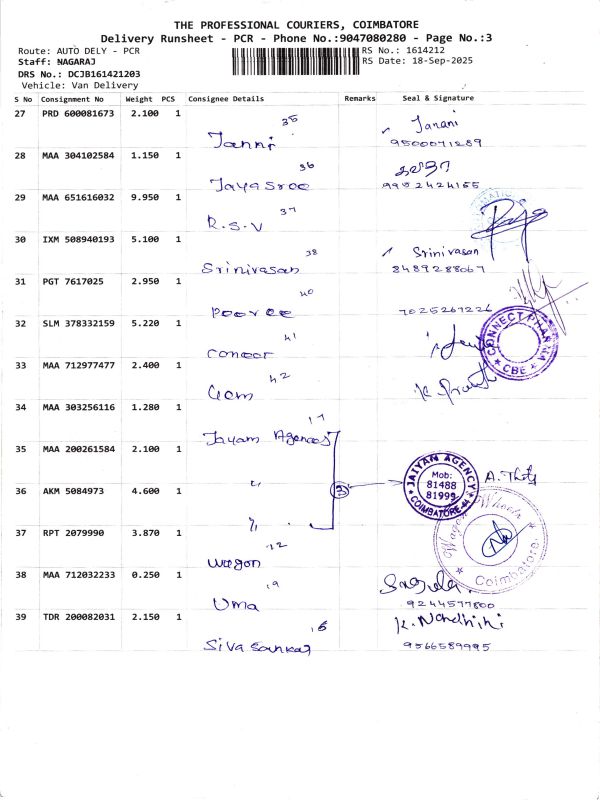 THE PROFESSIONAL COURIERS, COIMBATORE
Delivery Runsheet - PCR - Phone No.:9047080280 - Page No.:3
Route: AUTO DELY - PCR
RS No.: 1614212
Staff: NAGARAJ
RS Date: 18-Sep-2025
DRS No.: DCJB161421203
Vehicle: Van Delivery
S No Consignment No Weight PCS Consignee Details Remarks Seal & Signature
27 PRD 600081673 2.100 1
35
Janni
Janani
9500071289
28 MAA 304102584 1.150 1
36
Jayasree
9952424165
29 MAA 651616032 9.950 1
37
R.S.V
30 IXM 508940193 5.100 1
38
Srinivasan
Srinivasan
8489288067
31 PGT 7617025 2.950 1
40
7025267226
32 SLM 378332159 5.220 1
41
CONNECT PHARMA
CBE
33 MAA 712977477 2.400 1
42
Gem
34 MAA 303256116 1.280 1
17
Jayam Agences
35 MAA 200261584 2.100 1
"
3
JAIYAN AGENCY
Mob:
81488
81999
COIMBATORE-44
36 AKM 5084973 4.600 1
"
37 RPT 2079990 3.870 1
12
wagon
Wagon Wheels
Coimbatore
38 MAA 712032233 0.250 1
19
Uma
9244577800
39 TDR 200082031 2.150 1
16
Siva Sankar
K. Nandhini
9566589995